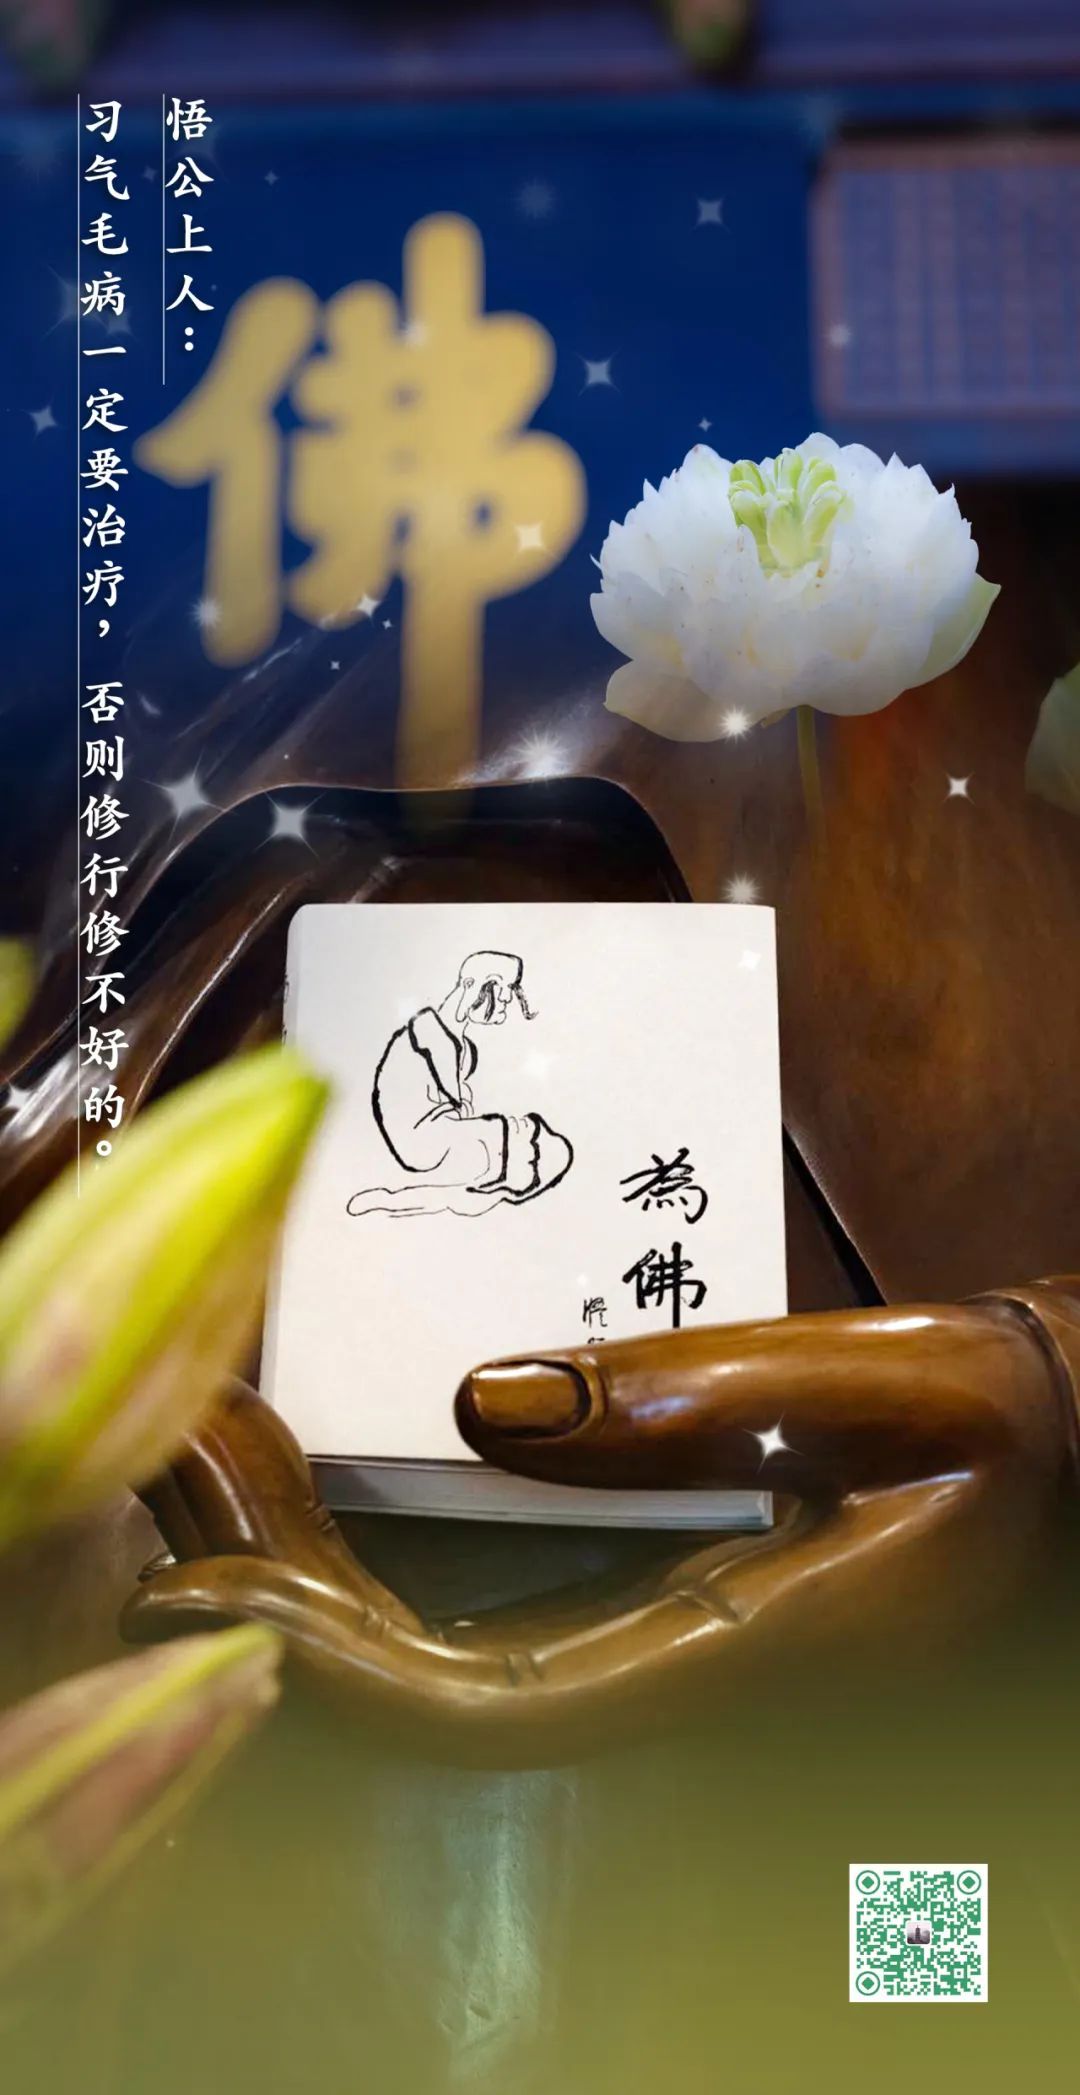 悟公上人：
习气毛病一定要治疗，否则修行修不好的。
佛
為佛